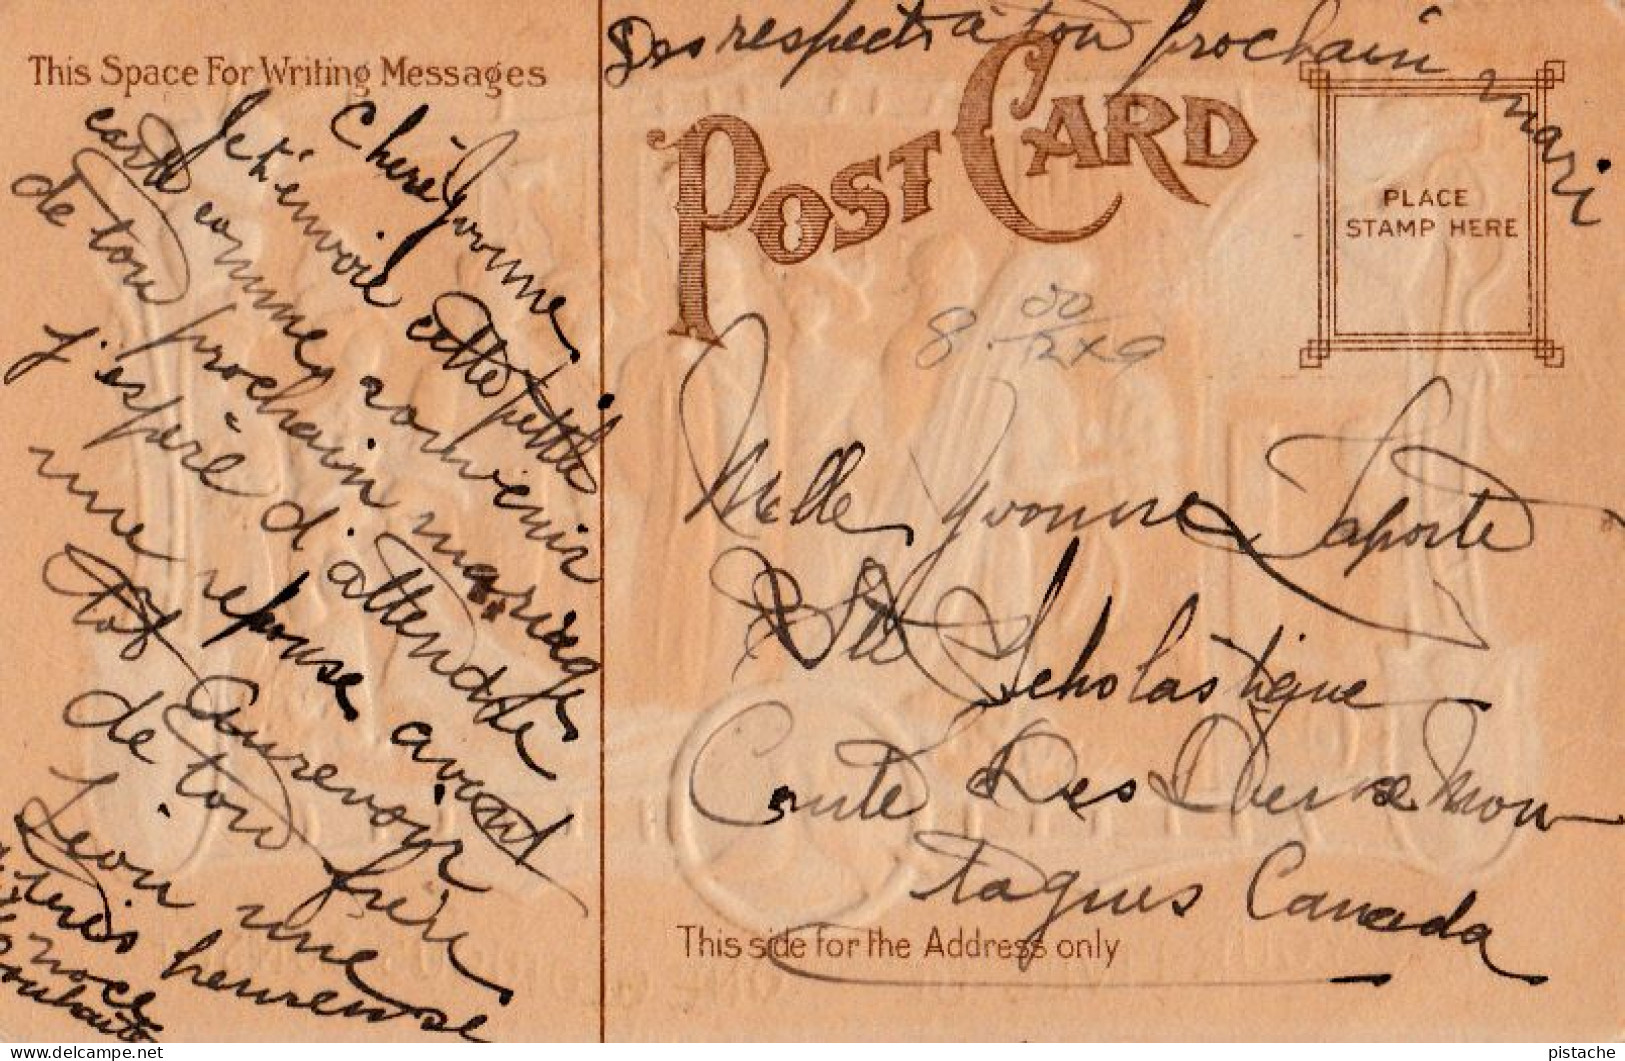 Des respects à ton prochain mari
This Space For Writing Messages
POST CARD
PLACE
STAMP HERE
Chère Yvonne
Je t'envoie cette petite
carte comme souvenir
de ton prochain mariage
j'espère d'attendre
une reponse avant
Aurevoir
de ton frère
Leon une
heureuse
noce
souhaite
8.00
12x9
Melle Yvonne Laporte
Ste Scholastique
Comté Des Deux Mon
tagnes Canada
This side for the Address only
pistache
delcampe.net